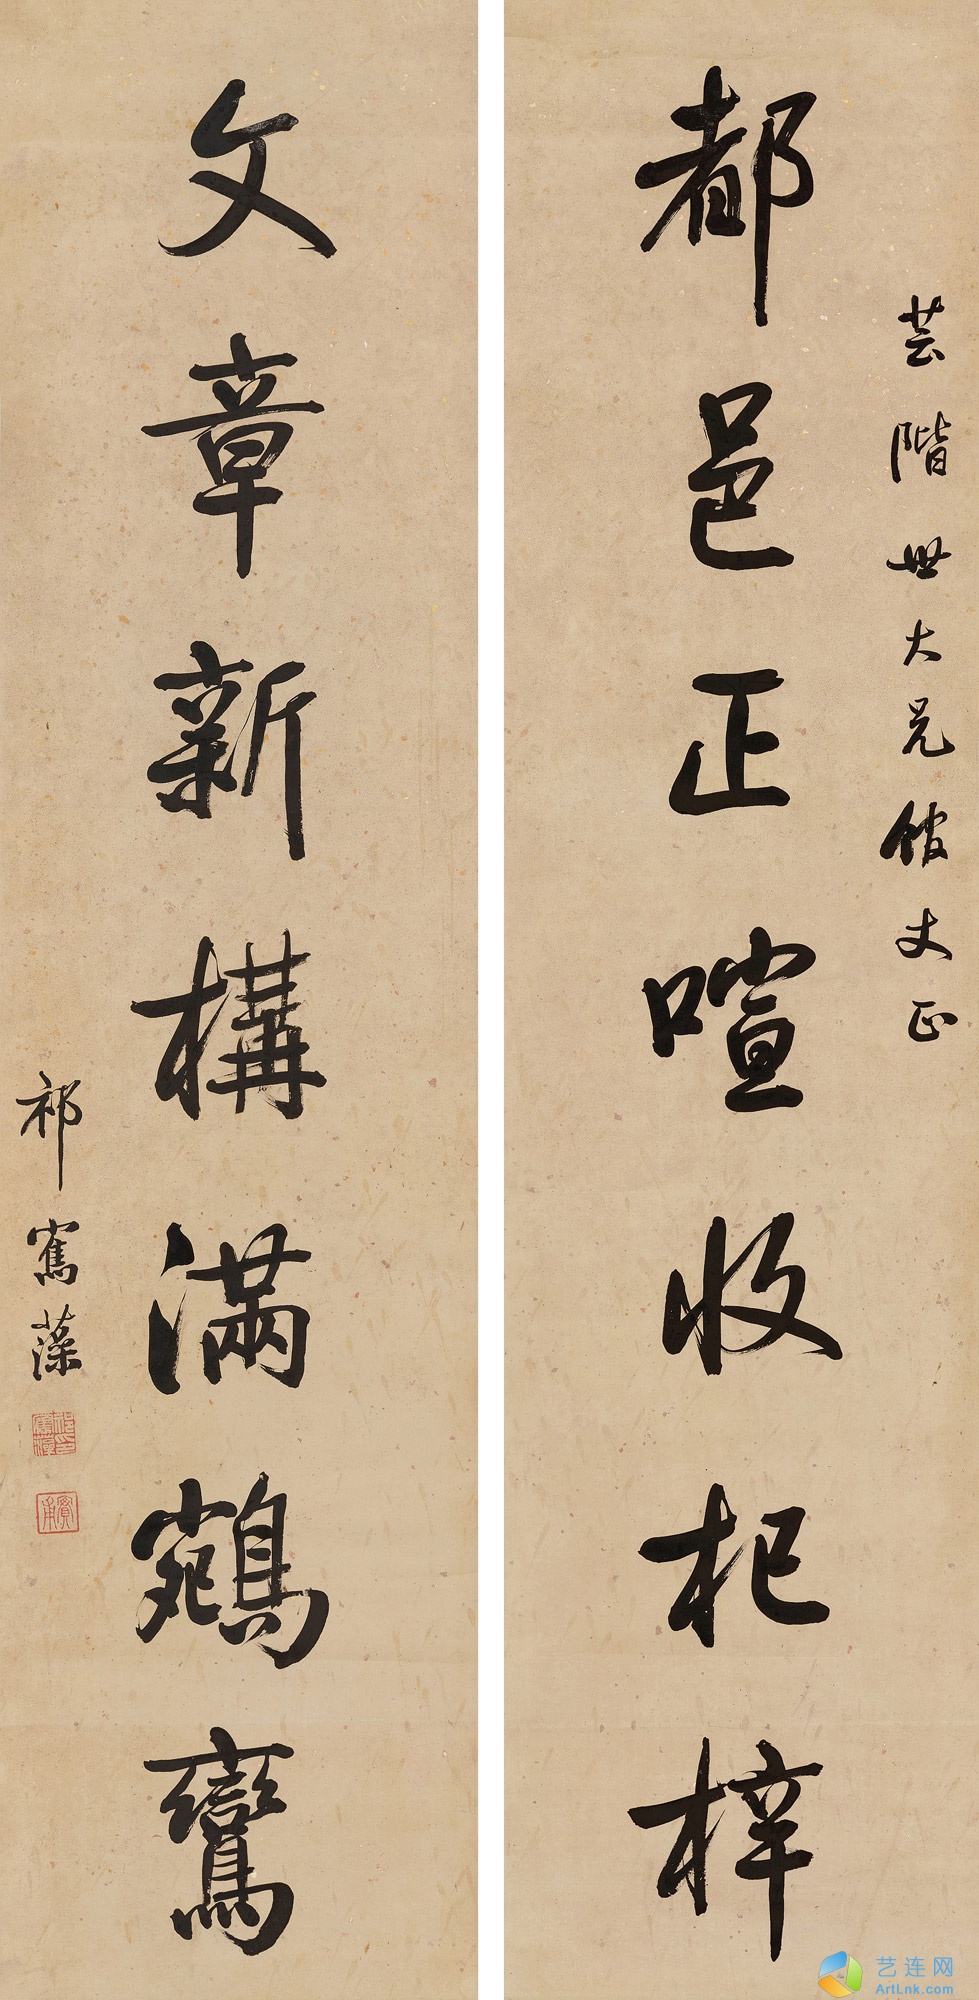 芸階世大兄館丈正
都邑正喧收杞梓
文章新構滿鵷鸞
祁寯藻
祁寯藻印
實甫
艺连网
ArtLnk.com